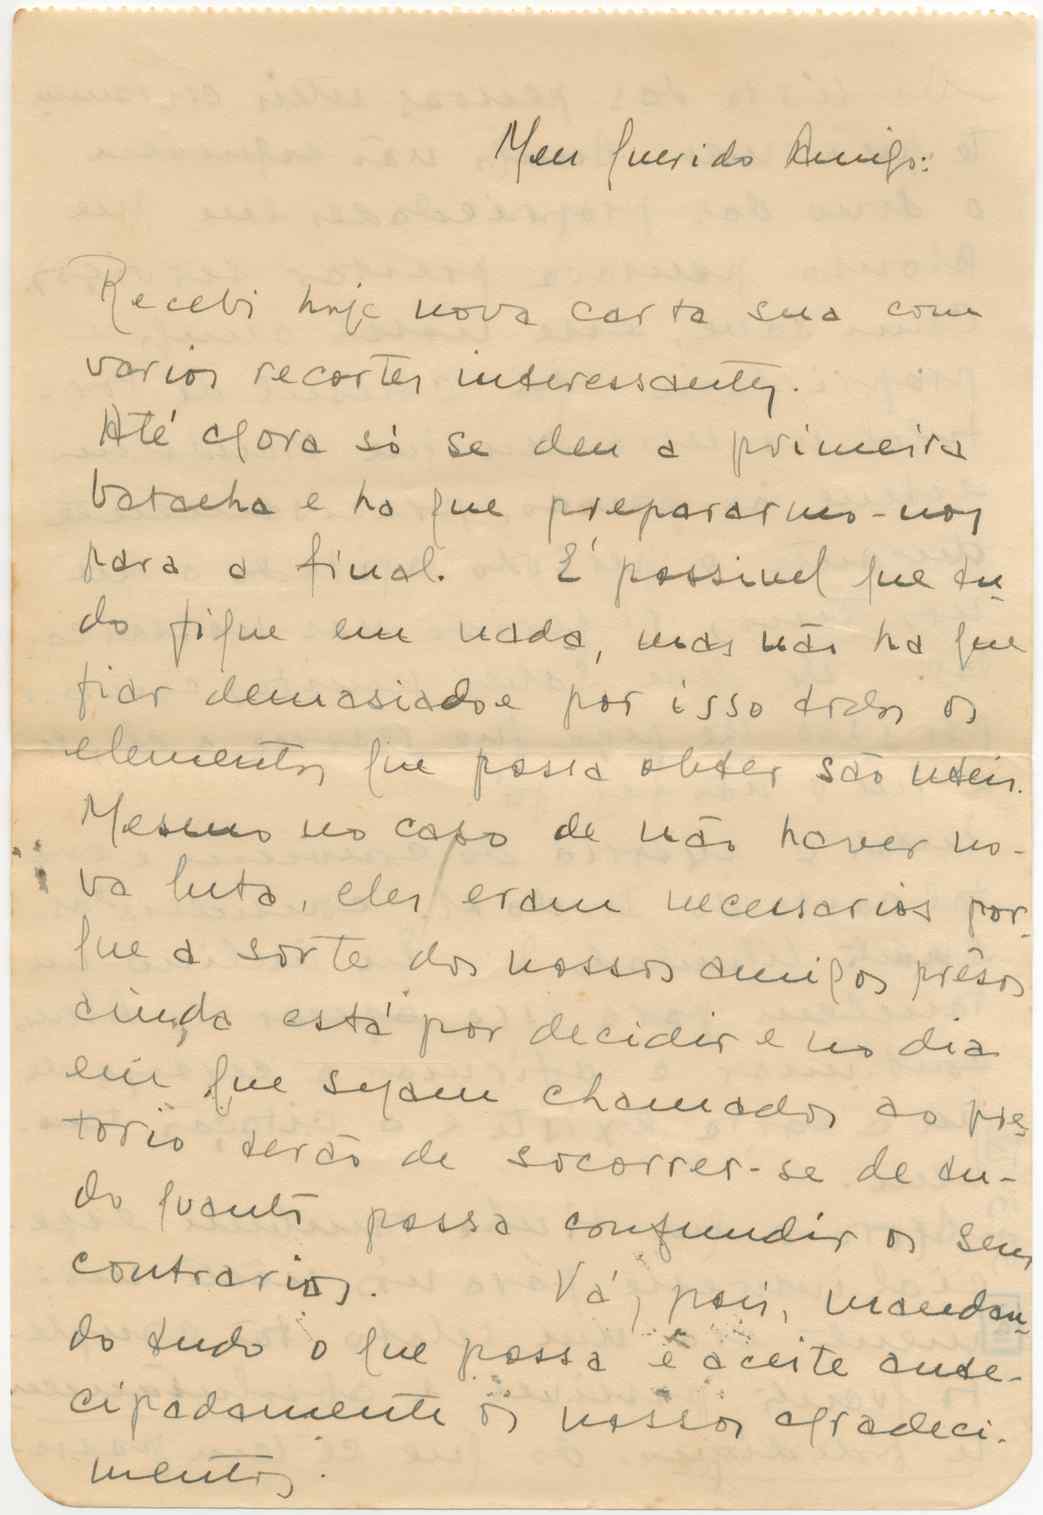 Meu querido Amigo:
Recebi hoje nova carta sua com
varios recortes interessantes.
Até agora só se deu a primeira
batalha e ha que prepararmo-nos
para a final. É possivel que tu-
do fique em nada, mas não ha que
fiar demasiado e por isso todos os
elementos que possa obter são uteis.
Mesmo no caso de não haver no-
va luta, eles eram necessarios por-
que a sorte dos nossos amigos prêsos
ainda está por decidir e no dia
em que sejam chamados ao pre-
torio terão de socorrer-se de tu-
do quanto possa confundir os seus
contrarios. Vá, pois, mandan-
do tudo o que possa e aceite ante-
cipadamente os nossos agradeci-
mentos.